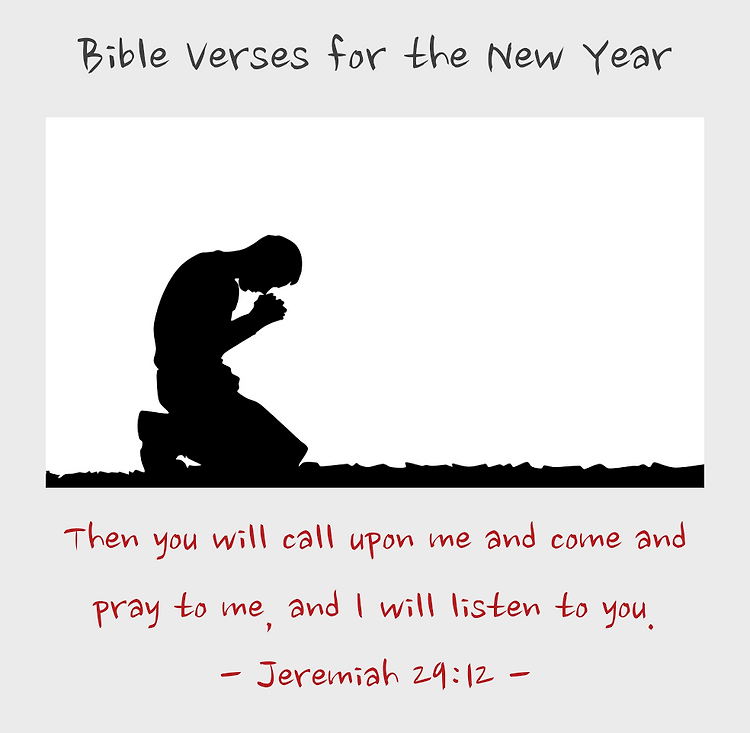 Bible Verses for the New Year
Then you will call upon me and come and
pray to me, and I will listen to you.
- Jeremiah 29:12 -